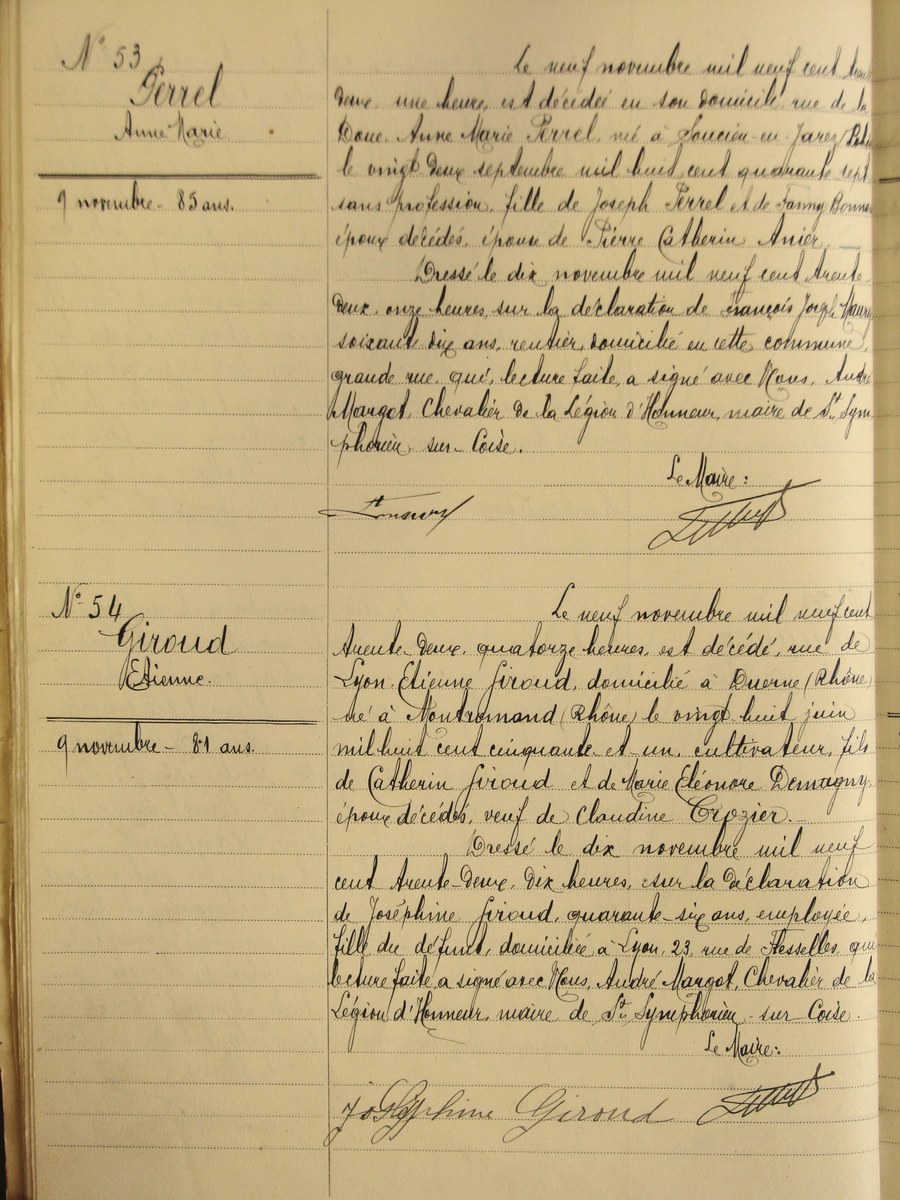 N° 53
Perrel
Anne Marie
9 novembre - 85 ans.
Le neuf novembre mil neuf cent trente
Deux, une heure, est décédée en son domicile, rue de la
Doue, Anne Marie Perrel, née à Soucieu-en-Jarez
le vingt deux septembre mil huit cent quarante sept,
sans profession, fille de Joseph Perrel et de Fanny
époux décédés, épouse de Pierre Catherin Anier. —
Dressé le dix novembre mil neuf cent trente-
deux, onze heures, sur la déclaration de François Joseph
soixante dix ans, rentier, domicilié en cette commune,
grande rue, qui, lecture faite, a signé avec Nous, André
Margot, Chevalier de la Légion d'Honneur, maire de St Sym
phorien-sur-Coise.
Le Maire:
N° 54
Giroud
Etienne.
9 novembre - 81 ans.
Le neuf novembre mil neuf cent
trente-deux, quatorze heures, est décédé, rue de
Lyon, Etienne Giroud, domicilié à Duerne (Rhône)
né à Montromand (Rhône) le vingt huit juin
mil huit cent cinquante et un, cultivateur, fils
de Catherin Giroud et de Marie Eléonore Demagny,
époux décédés, veuf de Claudine Crozier. —
Dressé le dix novembre mil neuf
cent trente-deux, dix heures, sur la déclaration
de Joséphine Giroud, quarante-six ans, employée,
fille du défunt, domiciliée à Lyon, 23, rue de Flesselles, qui
lecture faite, a signé avec Nous, André Margot, Chevalier de la
Légion d'Honneur, maire de St Symphorien-sur-Coise.
Le Maire:
Joséphine Giroud